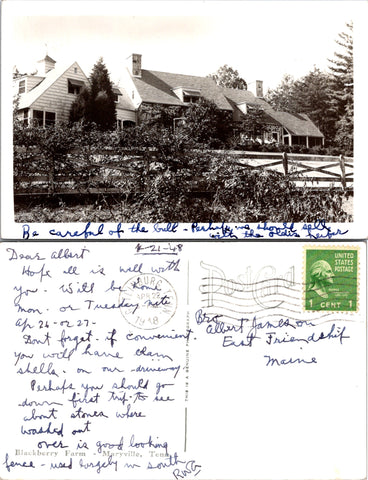 Be careful of the bull - Perhaps we should sell
with the older heifer
Dear Albert
4-21-48
Hope all is well with
you. Will be home
mon. or Tuesday nite
Apr 26 or 27.
Dont forget if convenient
you will have clam
shells on our driveway
Perhaps you should go
down first trip to see
bout stones where
washed out
over is good looking
fence - used largely in south
Blackberry Farm - Maryville, Tenn
THIS IS A GENUINE
Post Card
1948
UNITED STATES
POSTAGE
1 CENT 1
Bro
Albert Jameson
East Friendship
Maine